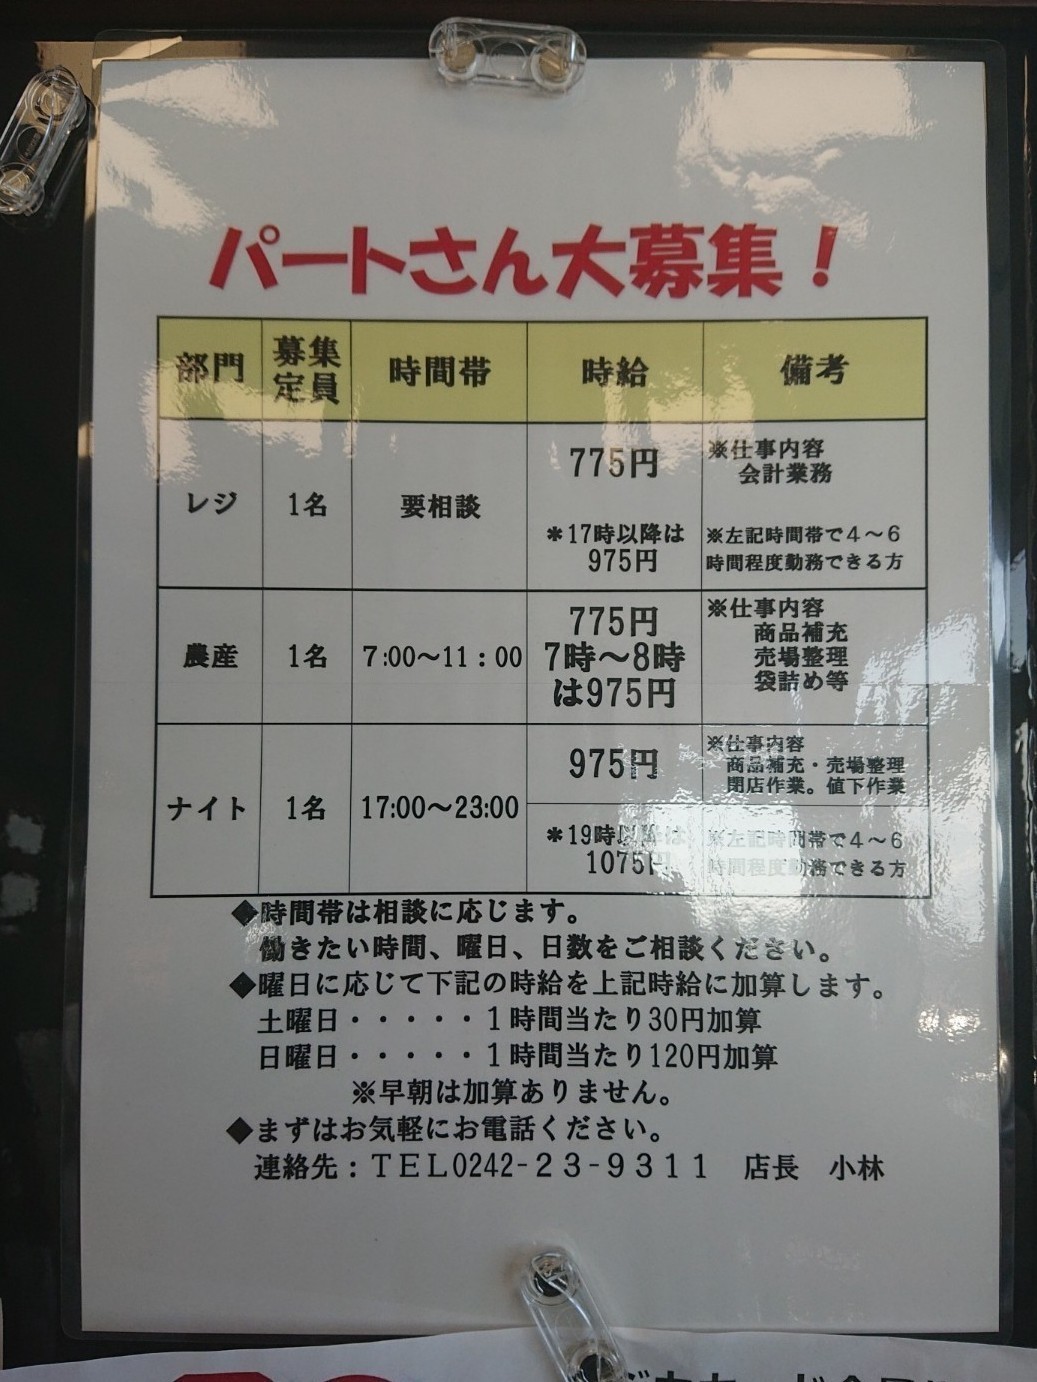 パートさん大募集！
部門 募集定員 時間帯 時給 備考
レジ 1名 要相談 775円 ＊17時以降は975円 ※仕事内容 会計業務 ※左記時間帯で４～６時間程度勤務できる方
農産 1名 7:00～11：00 775円 7時～8時は975円 ※仕事内容 商品補充 売場整理 袋詰め等
ナイト 1名 17:00～23:00 975円 ※仕事内容 商品補充・売場整理 閉店作業。値下作業
＊19時以降は1075円 ※左記時間帯で４～６時間程度勤務できる方
◆時間帯は相談に応じます。
働きたい時間、曜日、日数をご相談ください。
◆曜日に応じて下記の時給を上記時給に加算します。
土曜日・・・・・１時間当たり30円加算
日曜日・・・・・１時間当たり120円加算
※早朝は加算ありません。
◆まずはお気軽にお電話ください。
連絡先：ＴＥＬ0242-２３-９３１１　店長　小林